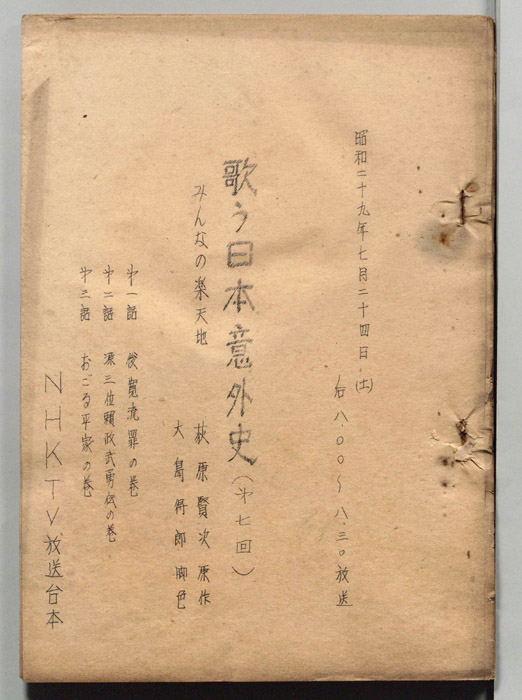 昭和二十九年七月二十四日(土)
后八.〇〇〜八.三〇放送
歌う日本意外史(才七回)
みんなの楽天地
萩原賢次原作
大島得郎脚色
才一話 俊寛流罪の巻
才二話 源三位頼政武勇伝の巻
才三話 おごる平家の巻
NHKTV放送台本